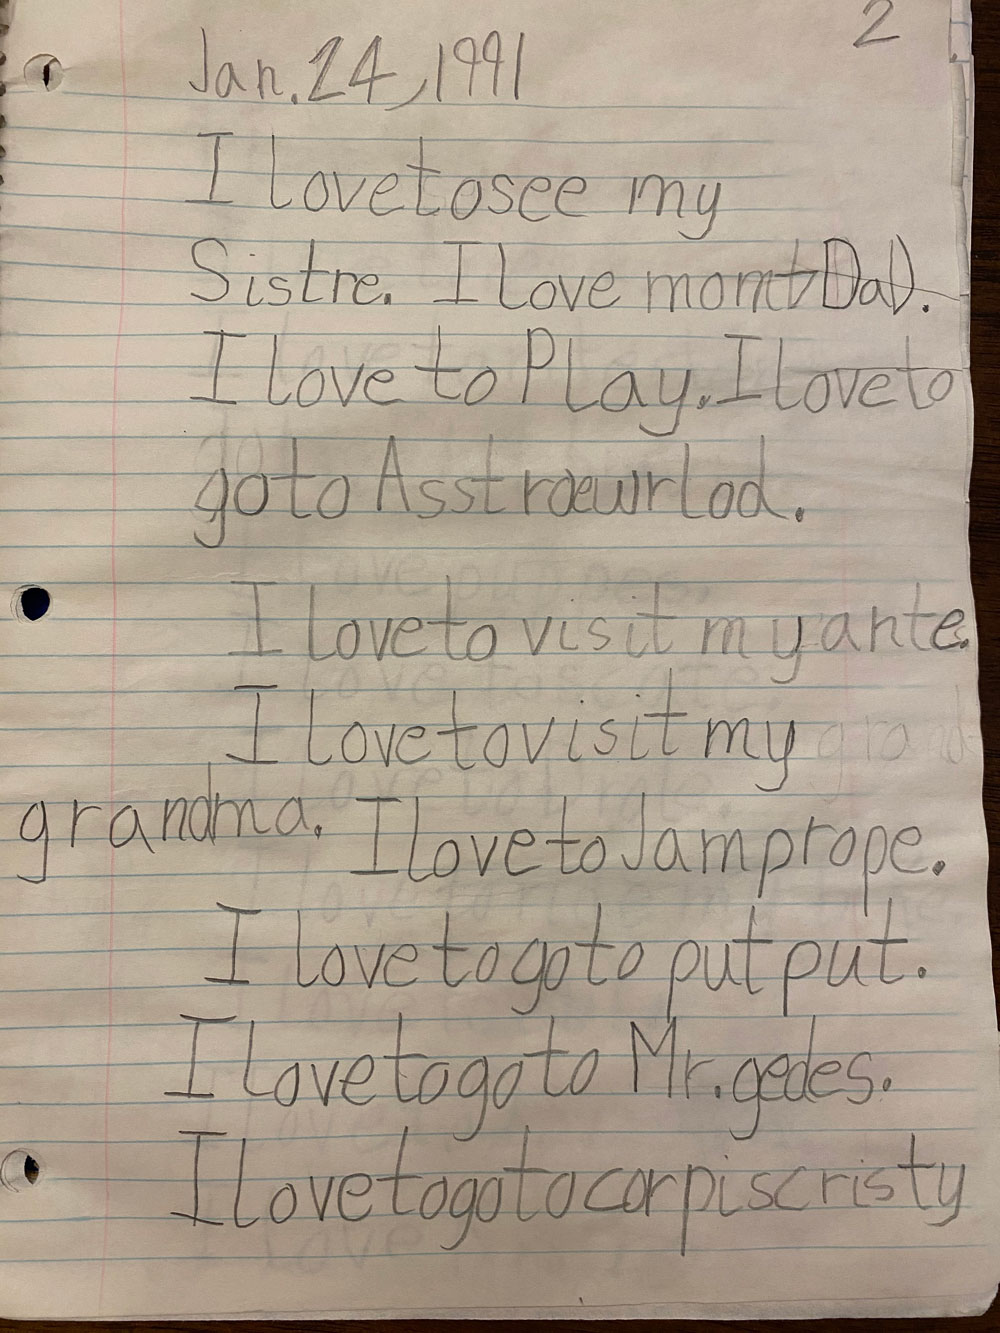 2
Jan. 24, 1991
I love to see my
Sistre. I love mom + DaD.
I love to Play. I love to
go to Asstroewrlod.
I love to visit my ante.
I love to visit my grand
grandma. I love to Jamprope.
I love to go to put put.
I love to go to Mr. gedes.
I love to go to corpis cristy